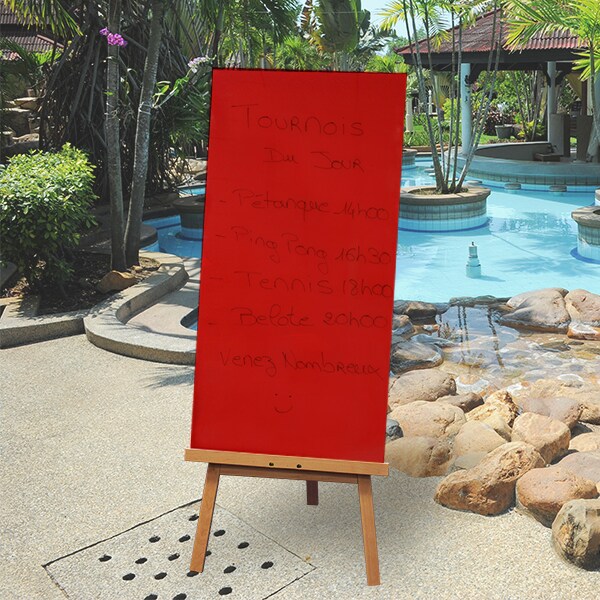 TOURNOIS
Du JOUR
- Pétanque 14h00
- Ping Pong 16h30
- Tennis 18h00
- Belote 20h00
Venez Nombreux